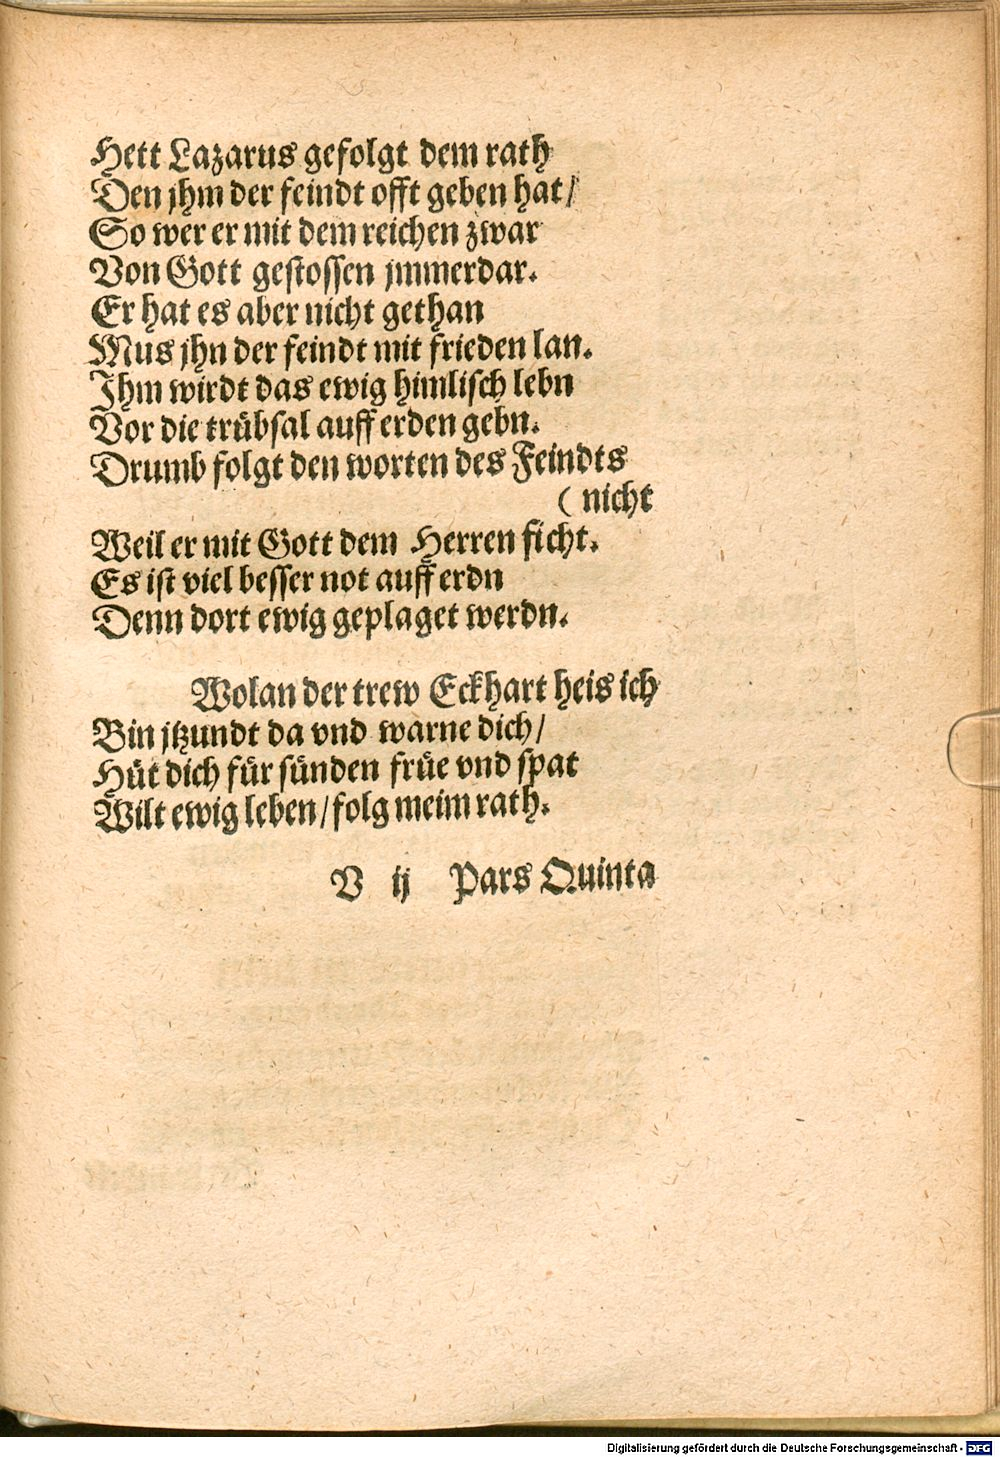 Hett Lazarus gefolgt dem rath
Den jhm der feindt offt geben hat/
So wer er mit dem reichen zwar
Von Gott gestossen jmmerdar.
Er hat es aber nicht gethan
Mus jhn der feindt mit frieden lan.
Ihm wirdt das ewig himlisch lebn
Vor die trübsal auff erden gebn.
Drumb folgt den worten des Feindts
( nicht
Weil er mit Gott dem Herren ficht.
Es ist viel besser not auff erdn
Denn dort ewig geplaget werdn.
Wolan der trew Eckhart heis ich
Bin jtzundt da vnd warne dich/
Hüt dich für sünden früe vnd spat
Wilt ewig leben/folg meim rath.
V ij Pars Quinta
Digitalisierung gefördert durch die Deutsche Forschungsgemeinschaft - DFG